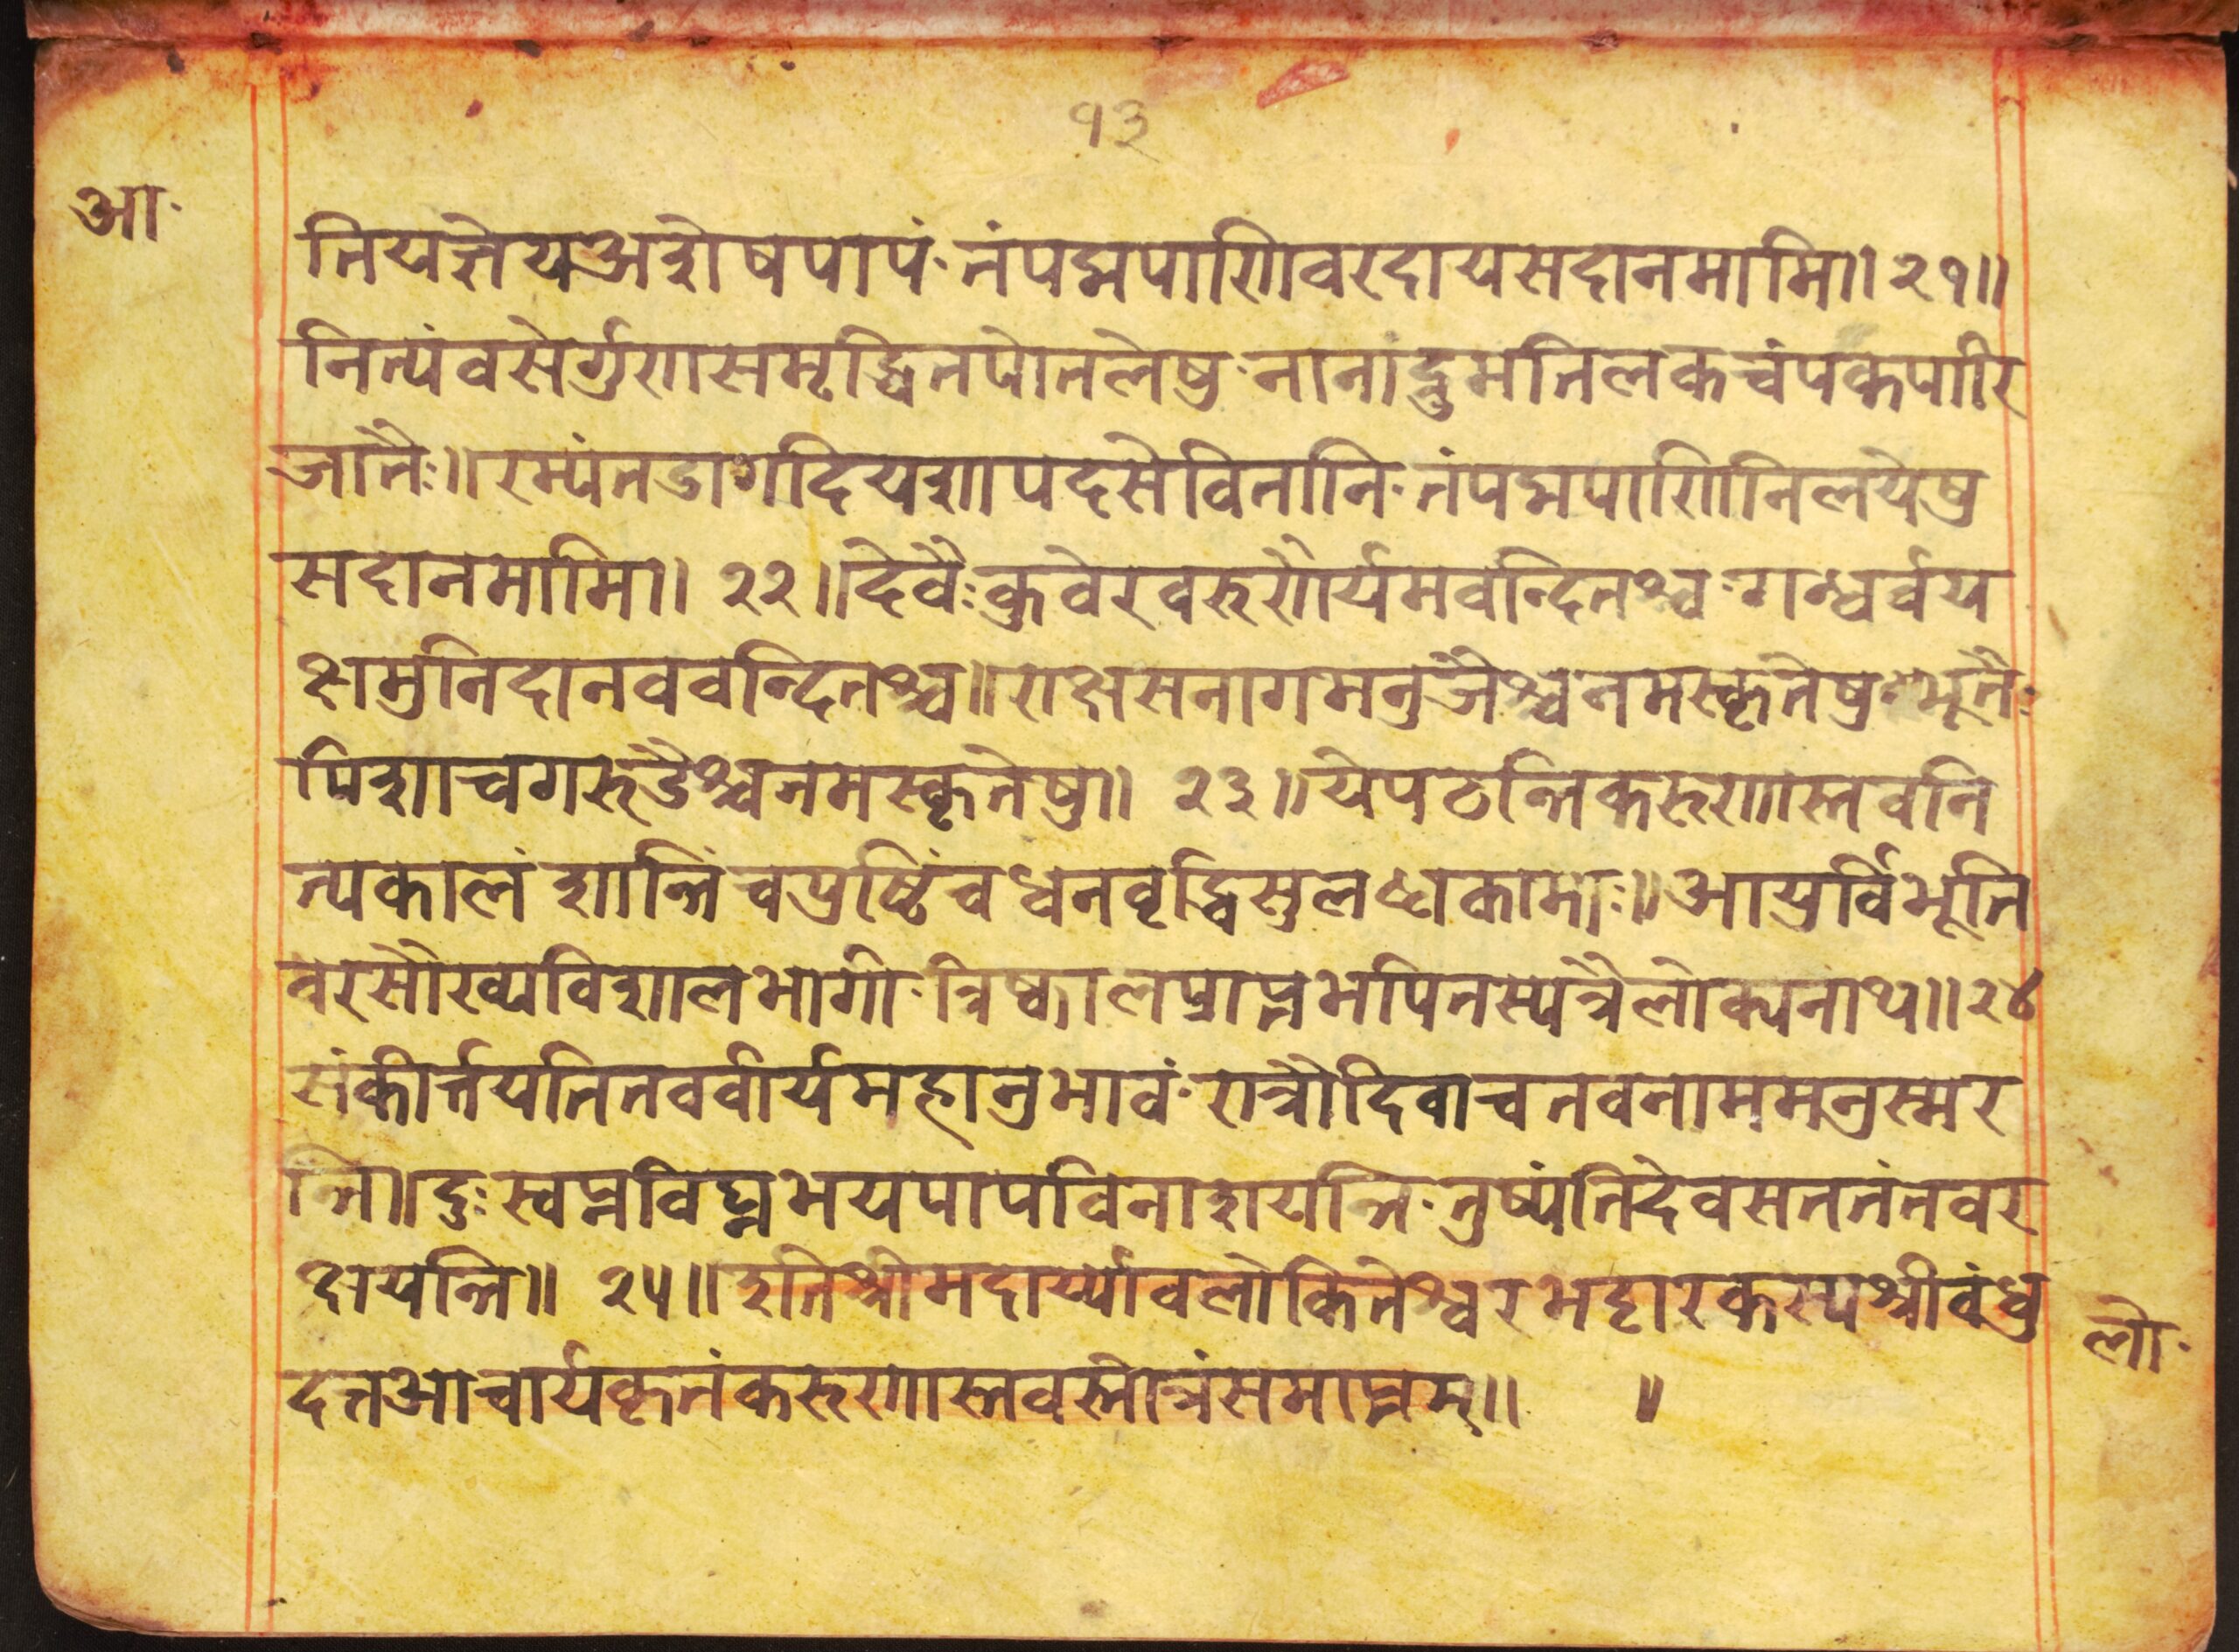 १३
आ·
तियत्तेयअशेषपापं·तंपद्मपाणिवरदायसदानमामि॥ २१॥
नित्यंवसेर्गुणसमृद्धितपोतलेषु·नानांद्रुमतिलकचंपकपारि
जातैः॥रम्यंतडागदियशापदसेवितानि·तंपद्मपाणिनिलयेषु
सदानमामि॥ २२॥देवैःकुवेरवरुणैर्यमवन्दितश्च·गन्धर्वय
क्षमुनिदानववन्दितश्च॥राक्षसनागमनुजैश्चनमस्कृतेषु·भूतैः
पिशाचगरुडैश्चनमस्कृतेषु॥ २३॥येपठन्तिकरुणास्तवनि
त्यकालं शान्तिंचपुष्टिंचधनवृद्धिसुलक्षकामाः॥आयुर्विभूति
वरसौख्यविशालभागी·त्रिष्कालप्राप्तभपितस्यत्रैलोक्यनाथ॥२४
संकीर्त्तयतितववीर्यमहानुभावं·रात्रौदिवाचतवनाममनुस्मर
न्ति॥दुःस्वप्नविघ्नभयपापविनाशयन्ति·तुष्यंतिदेवसततंतवर
क्षयन्ति॥ २५॥इतिश्रीमदार्य्यावलोकितेश्वरभट्टारकस्यश्रीवंधु
दत्तआचार्यकृतंकरुणास्तवस्तोत्रंसमाप्तम्॥ ॥
लो·